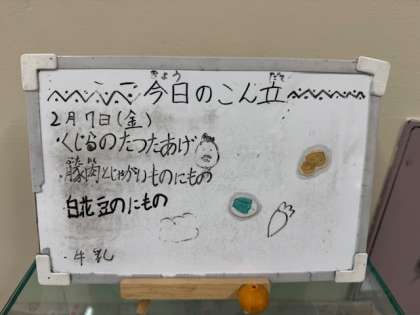 今日のこん立
きょう だて
2月7日(金)
・くじらのたつたあげ
・豚肉とじゃがいものにもの
白花豆のにもの
・牛乳